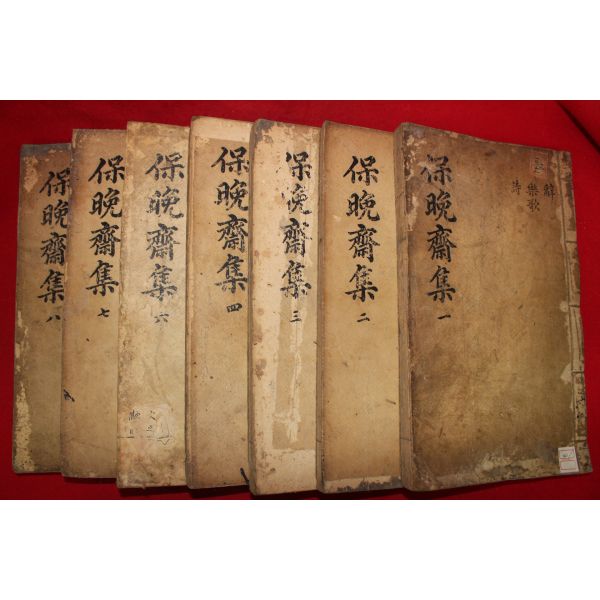 保晚齋集 一
辭
樂歌
詩
保晚齋集 二
保晚齋集 三
保晚齋集 四
保晚齋集 六
保晚齋集 七
保晚齋集 八